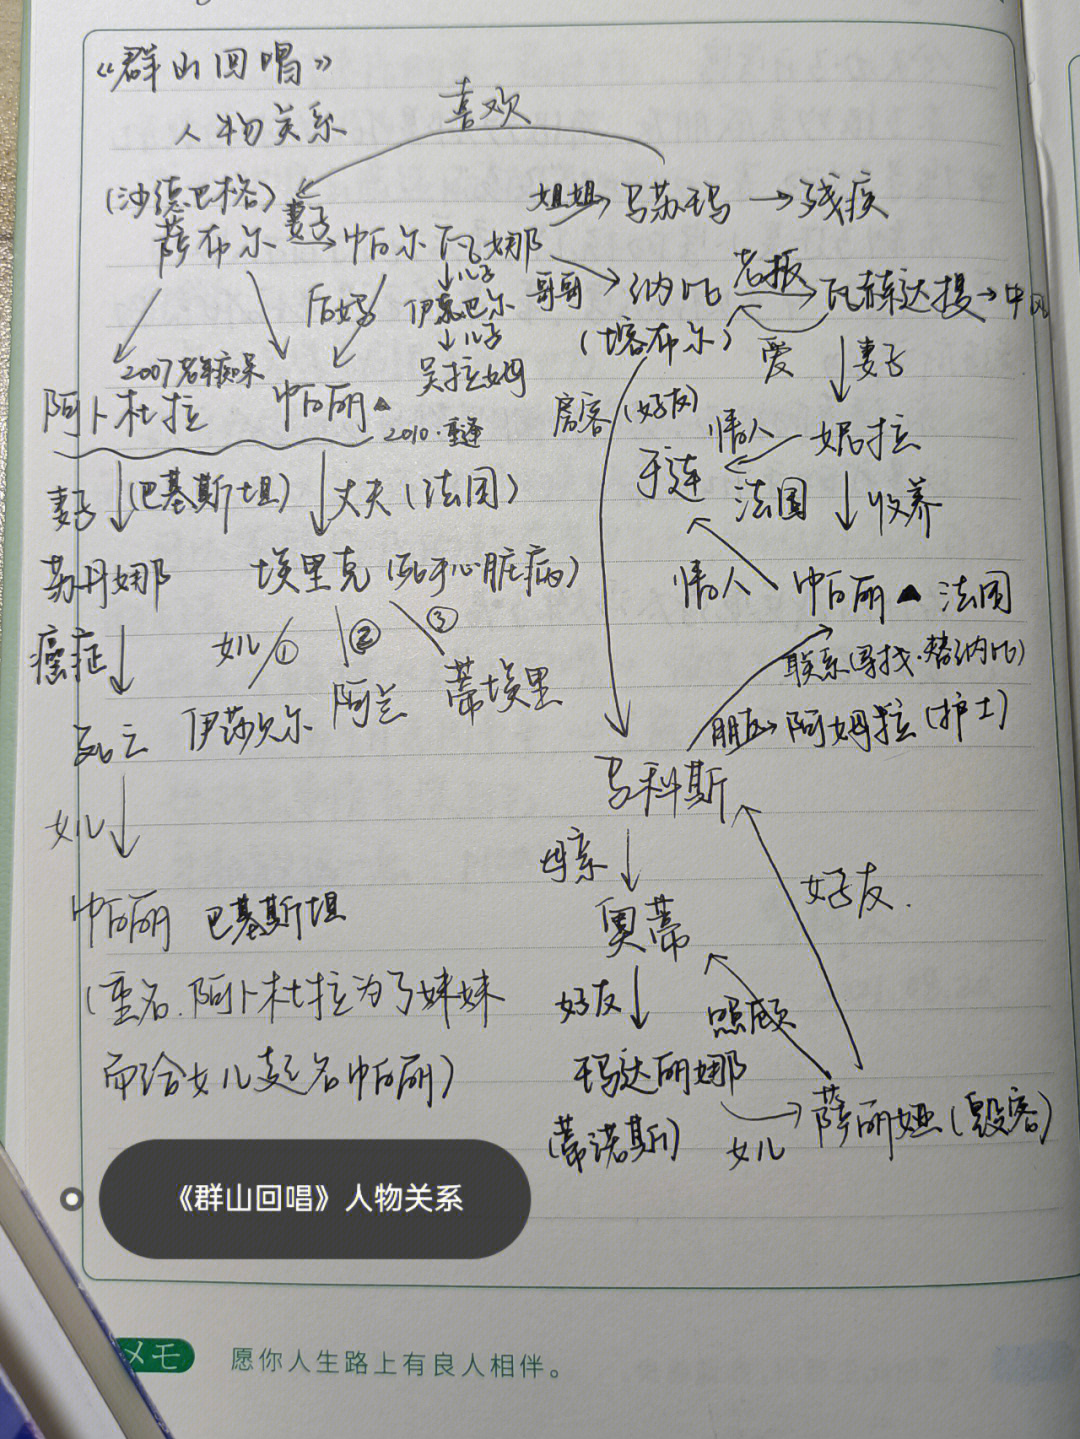 《群山回唱》
人物关系
喜欢
(沙德巴格)
萨布尔 妻子 帕尔瓦娜 姐姐 马苏玛 → 残疾
后妈 儿子 伊慕巴尔 哥哥 纳比 老板 瓦赫达提 → 中风
儿子 (喀布尔) 爱 妻子
2007老年痴呆 吴拉姆
阿卜杜拉 帕丽▲ 房客 (好友) 情人 妮拉
2010·重逢 于连 法国 收养
妻子 (巴基斯坦) 丈夫 (法国)
苏丹娜 埃里克 (死于心脏病) 情人 帕丽▲ 法国
癌症 女儿 ① ② ③ 联系(寻找·替纳比)
死亡 伊莎贝尔 阿兰 蒂埃里 朋友 阿姆拉 (护士)
马科斯
女儿 母亲
帕丽 巴基斯坦 奥蒂 好友.
(重名.阿卜杜拉为了妹妹 好友 照顾
而给女儿起名帕丽) 玛达丽娜
(蒂诺斯) 女儿 萨丽娅 (毁容)
《群山回唱》人物关系
メモ 愿你人生路上有良人相伴。